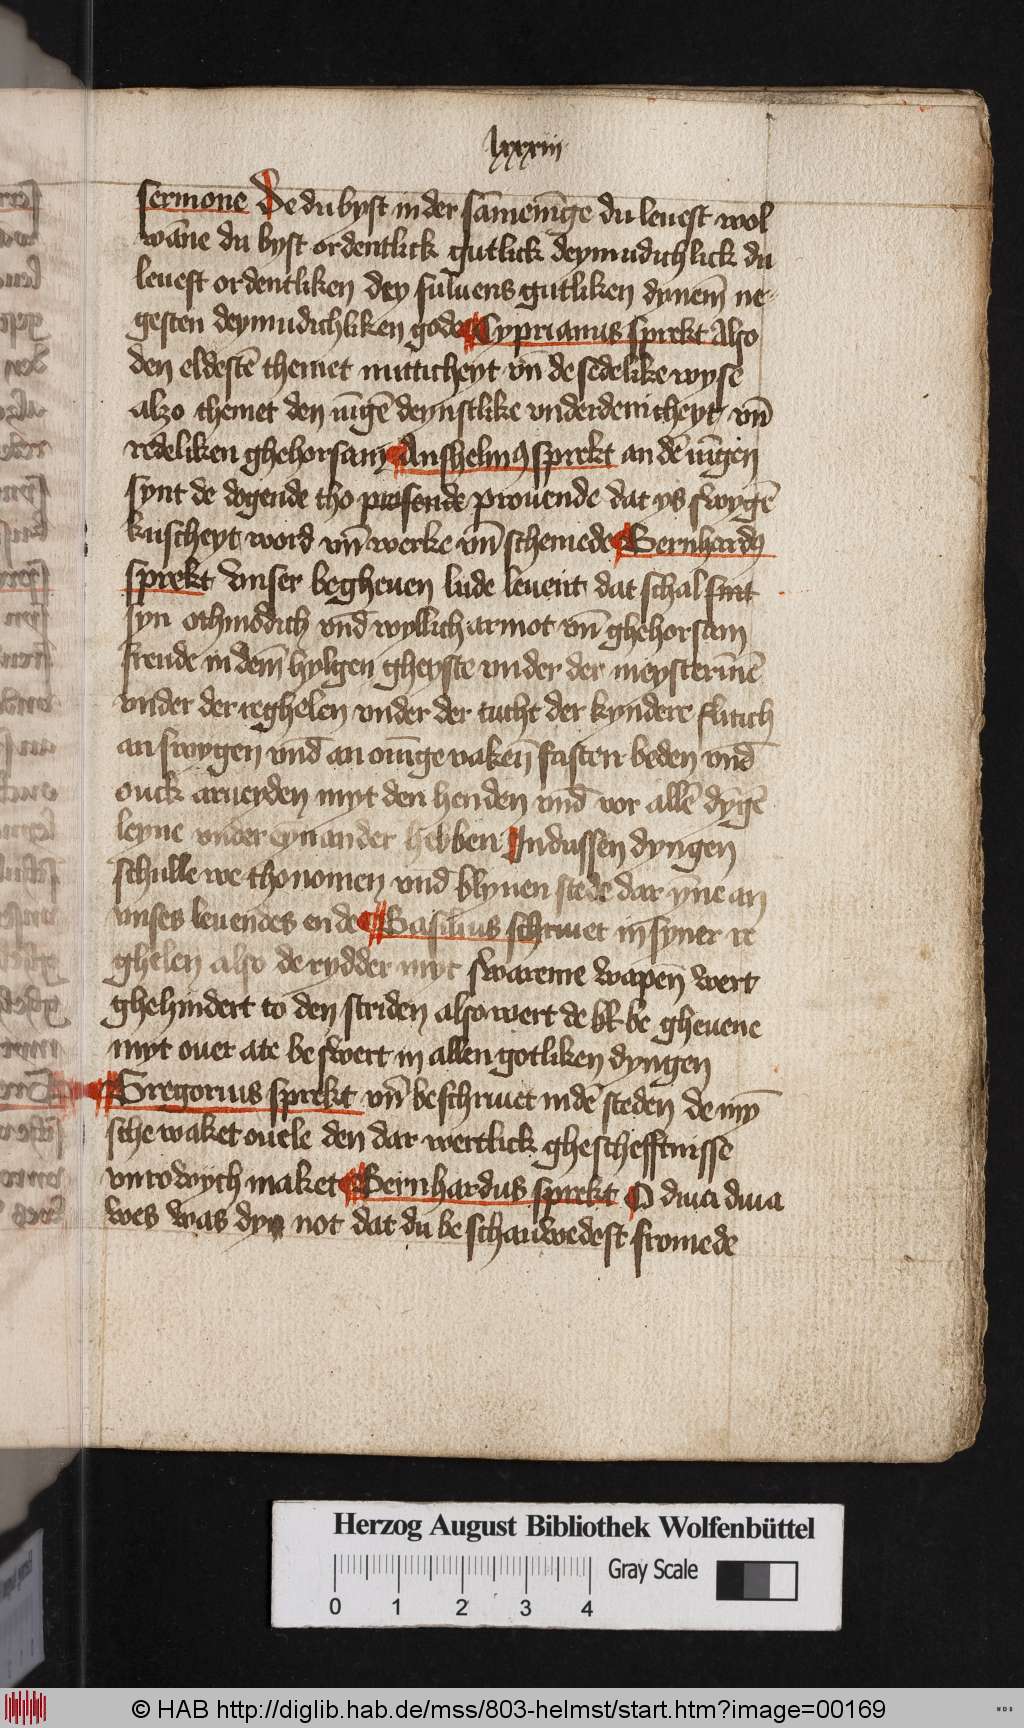 lxxxiii
sermone De du byst in der samēnīge du leuest wol
wāne du byst ordentlick gutlick deymudichlick du
leuest ordentliken dey suluens gutliken dynem̄ ne-
gesten deymudichliken gode Cyprianus sprekt Also
den eldestē themet mitticheyt vn̄ de sedelike wyse
alzo themet den iūgē deynstlike vnderdenicheyt vn̄
redeliken ghehorsam Anshelmꝰ sprekt an dē iūgen
synt de dogende tho prosende prouende dat ys swygē
kuscheyt word vn̄ werke vn̄ schemede Bernhardꝰ
sprekt Vnser begheuen lude leuent dat schal sint
syn othmōdich vnd̄ wyllich armot vn̄ ghehorsam
freude in dem̄ hylgen gheyste vnder der meysterīnē
vnder der reghelen vnder der tucht der kyndere flitich
an swygen vnd̄ an ouīge vaken̄ fasten beden vnd̄
ouck arueyden myt den henden vnd̄ vor allē dyngē
leyue vnder eynander hebben In dussen dyngen
schulle we thonomen vnd blyuen stede dar yne an
vnses leuendes ende Basilius schriuet in syner re
ghelen also de rydder myt swareme wapen̄ wert
ghehindert to den striden also wert de be gheuene
myt ouer ate be swert in allen gotliken dyngen
Gregorius sprekt vn̄ beschriuet in dē steden de my̅
sche waket ouele den dar wertlick ghescheftnisse
vnrowych maket Bernhardus sprekt O dina dina
wes was dyn not dat du be schauwedest fromede
Herzog August Bibliothek Wolfenbüttel
Gray Scale
0 1 2 3 4
© HAB http://diglib.hab.de/mss/803-helmst/start.htm?image=00169